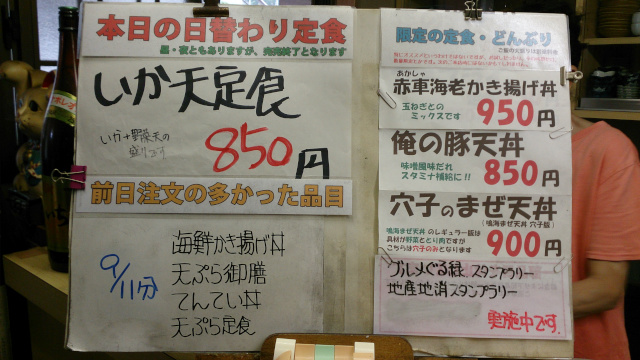 本日の日替わり定食
昼・夜ともありますが、完売終了となります
いか天定食
いか+野菜天の
盛りです
850円
前日注文の多かった品目
9/11分
海鮮かき揚げ丼
天ぷら御膳
てんてい丼
天ぷら定食
限定の定食・どんぶり
あかしゃ
赤車海老かき揚げ丼
玉ねぎとの
ミックスです
950円
俺の豚天丼
味噌風味だれ
スタミナ補給に!!
850円
穴子のまぜ天丼
(鳴海まぜ天丼 穴子版)
鳴海まぜ天丼 のレギュラー版は
具材が野菜ととり肉ですが
こちらは穴子のみとなります
900円
グルメぐる緑 スタンプラリー
地産地消スタンプラリー
実施中です